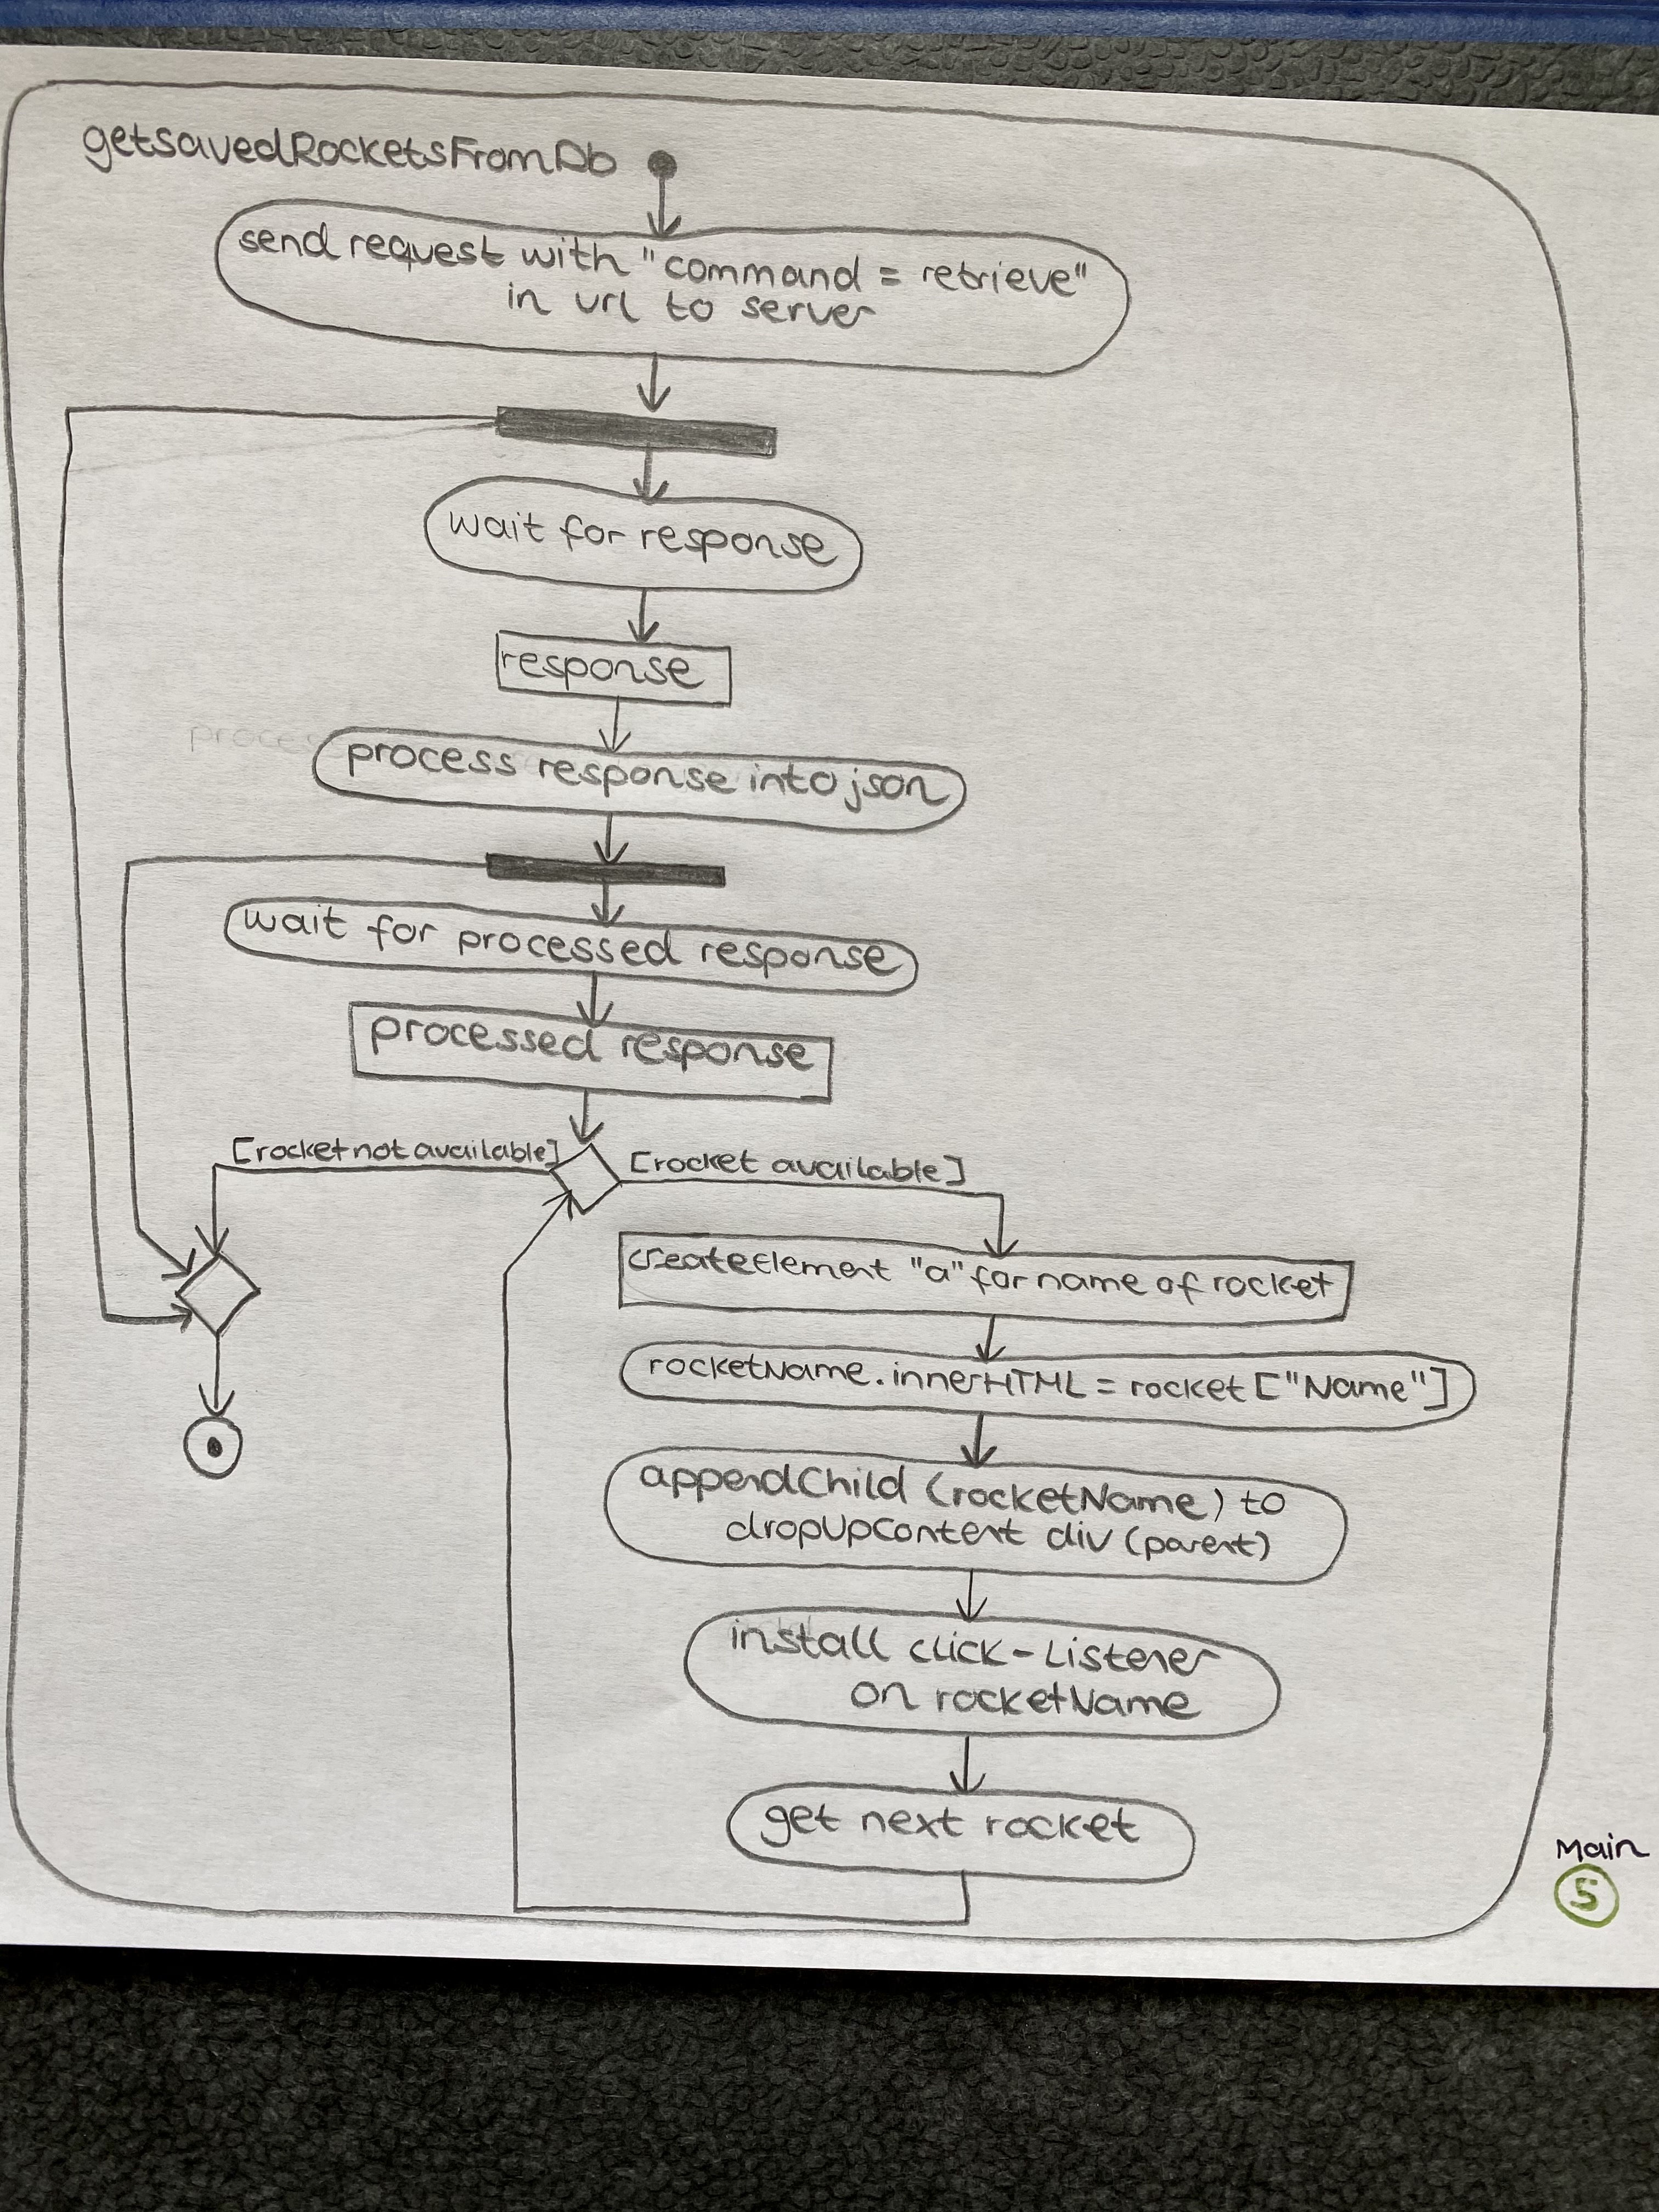 getsavedRocketsFromDb
send request with "command = retrieve"
in url to server
wait for response
response
process response into json
wait for processed response
processed response
[rocket not available]
[rocket available]
createElement "a" for name of rocket
rocketName.innerHTML = rocket ["Name"]
appendChild (rocketName) to
dropUpContent div (parent)
install click-Listener
on rocketName
get next rocket
Main
5